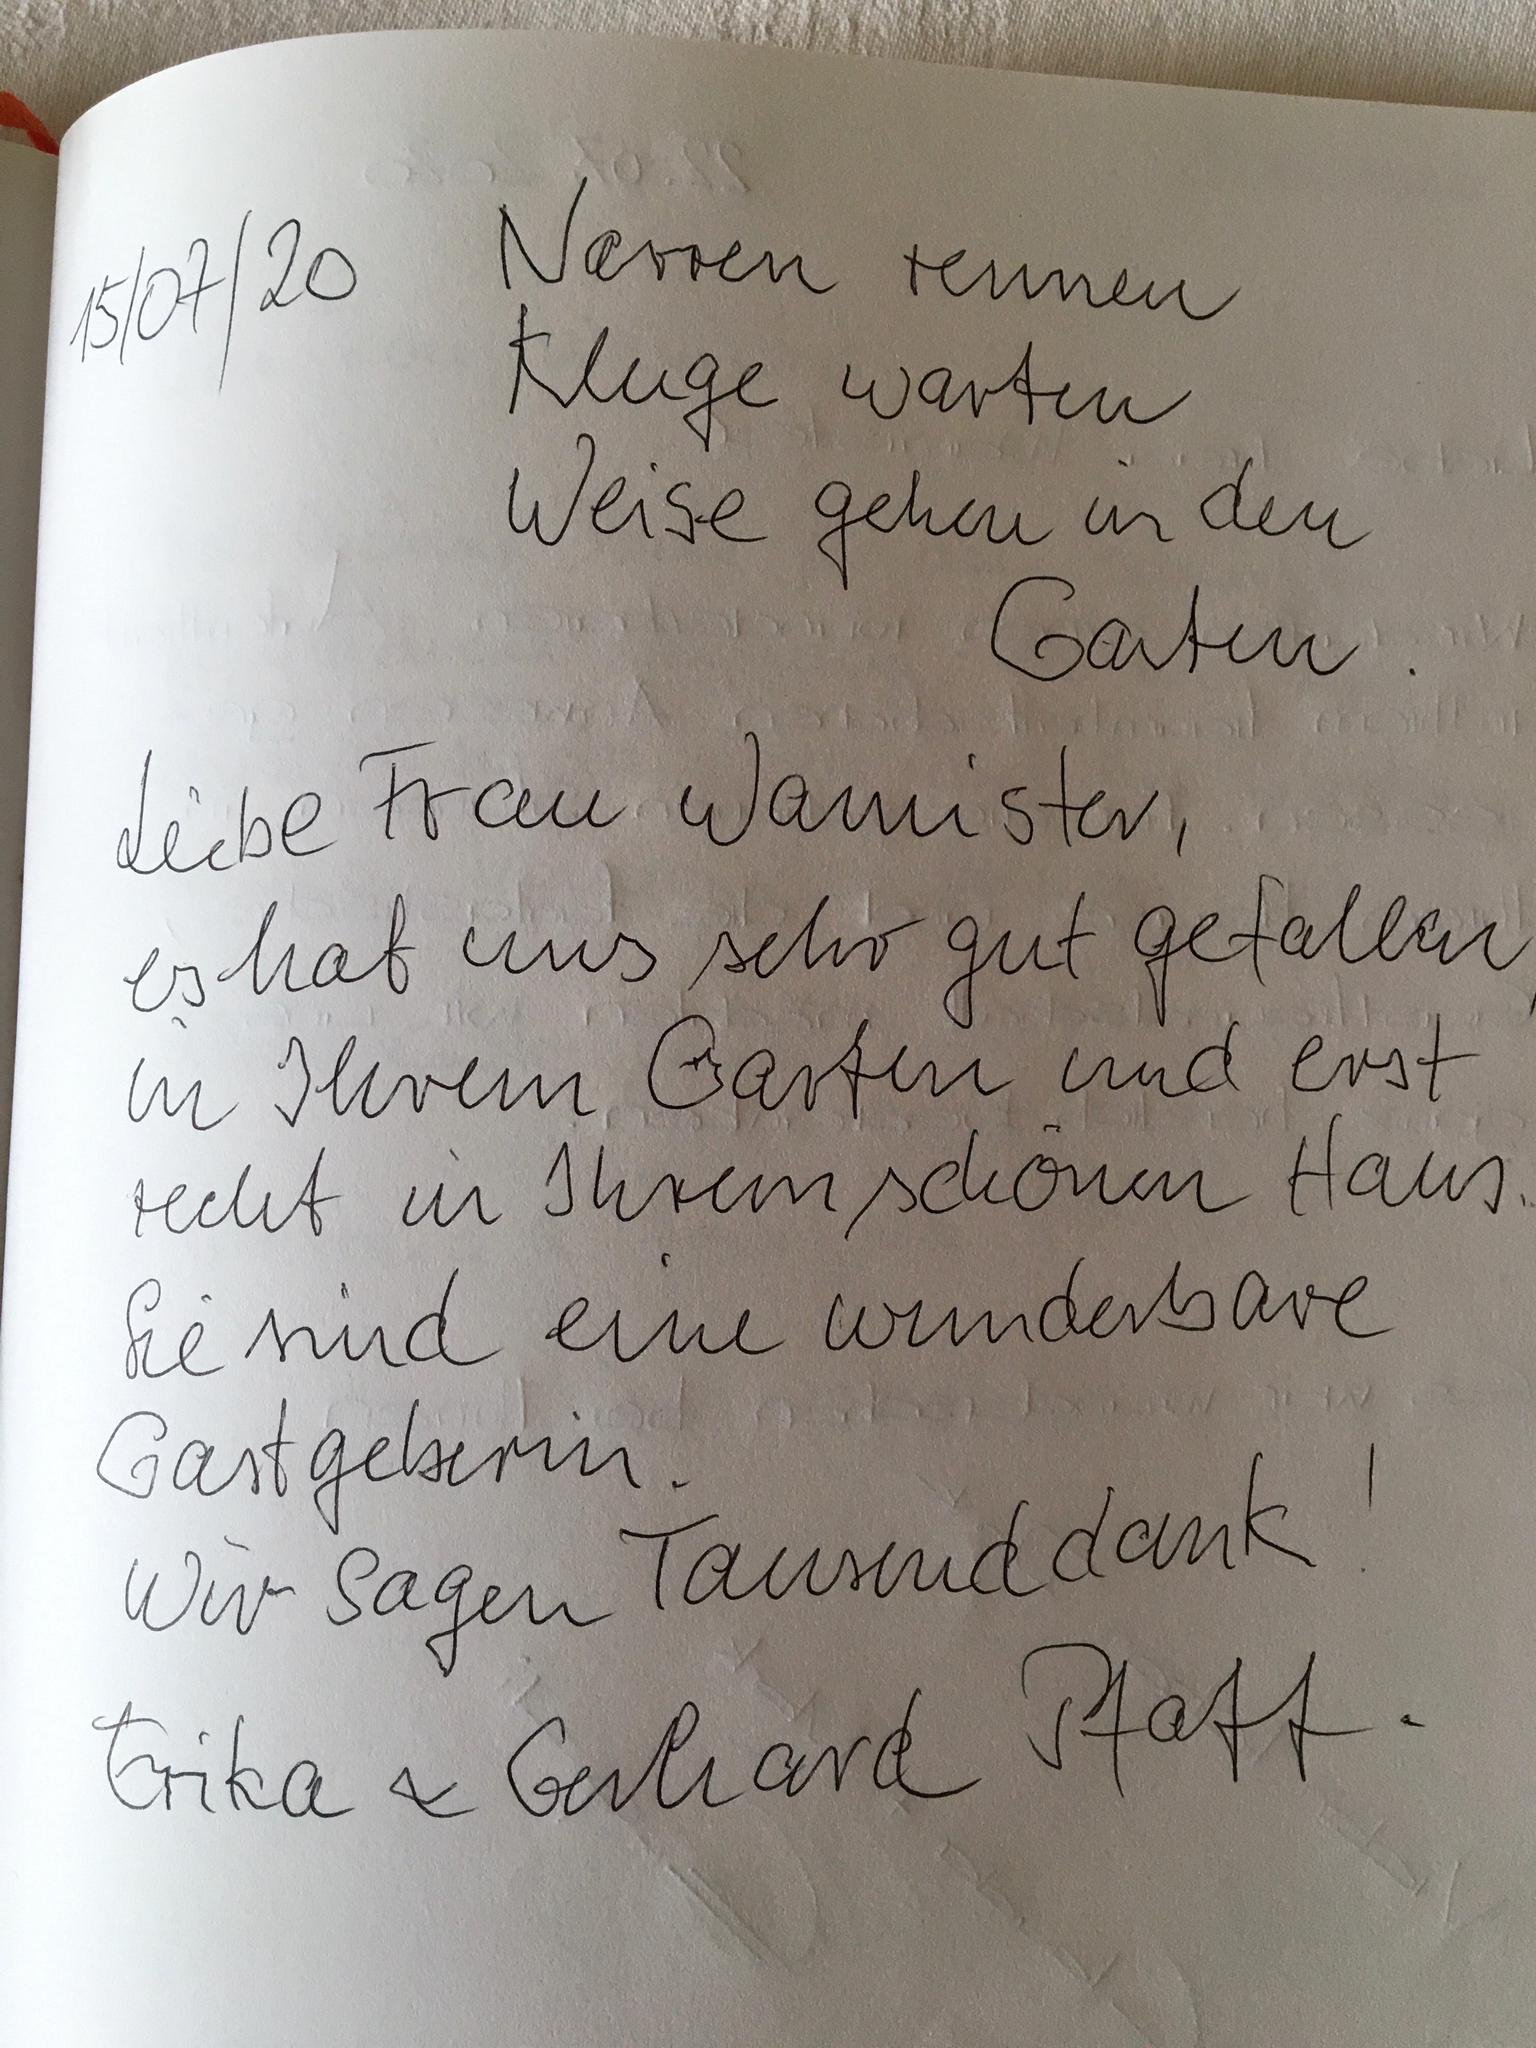 15/07/20 Narren rennen
Kluge warten
Weise gehen in den
Garten.
Liebe Frau Wannister,
es hat uns sehr gut gefallen,
in Ihrem Garten und erst
recht in Ihrem schönen Haus.
Sie sind eine wunderbare
Gastgeberin.
Wir sagen Tausenddank!
Erika & Gerhard Pfaff.